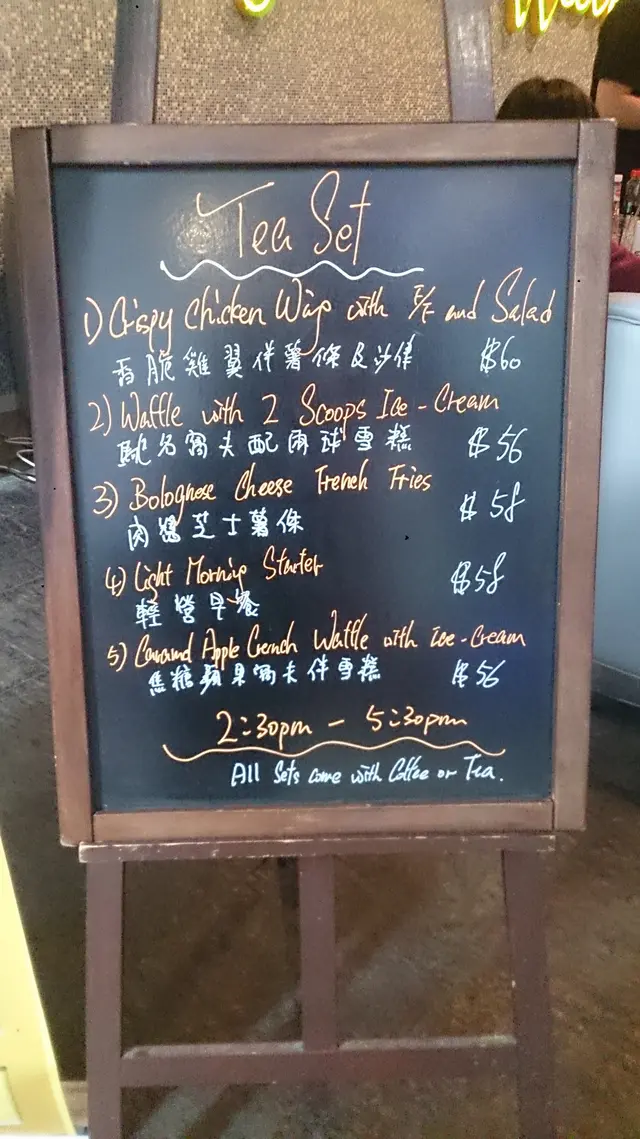 Tea Set
1) Crispy Chicken Wing with F/F and Salad
香脆雞翼伴薯條及沙律 $60
2) Waffle with 2 Scoops Ice-Cream
窩夫配兩球雪糕 $56
3) Bolognese Cheese French Fries
肉醬芝士薯條 $58
4) Light Morning Starter
輕營早餐 $58
5) Apple Waffle with Ice-Cream
焦糖蘋果窩夫伴雪糕 $56
2:30pm - 5:30pm
All Sets come with Coffee or Tea.